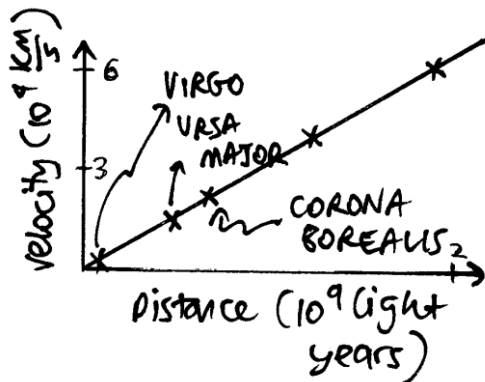 velocity (10⁴ km/s)
6
3
VIRGO
URSA
MAJOR
CORONA
BOREALIS
2
Distance (10⁹ light
years)